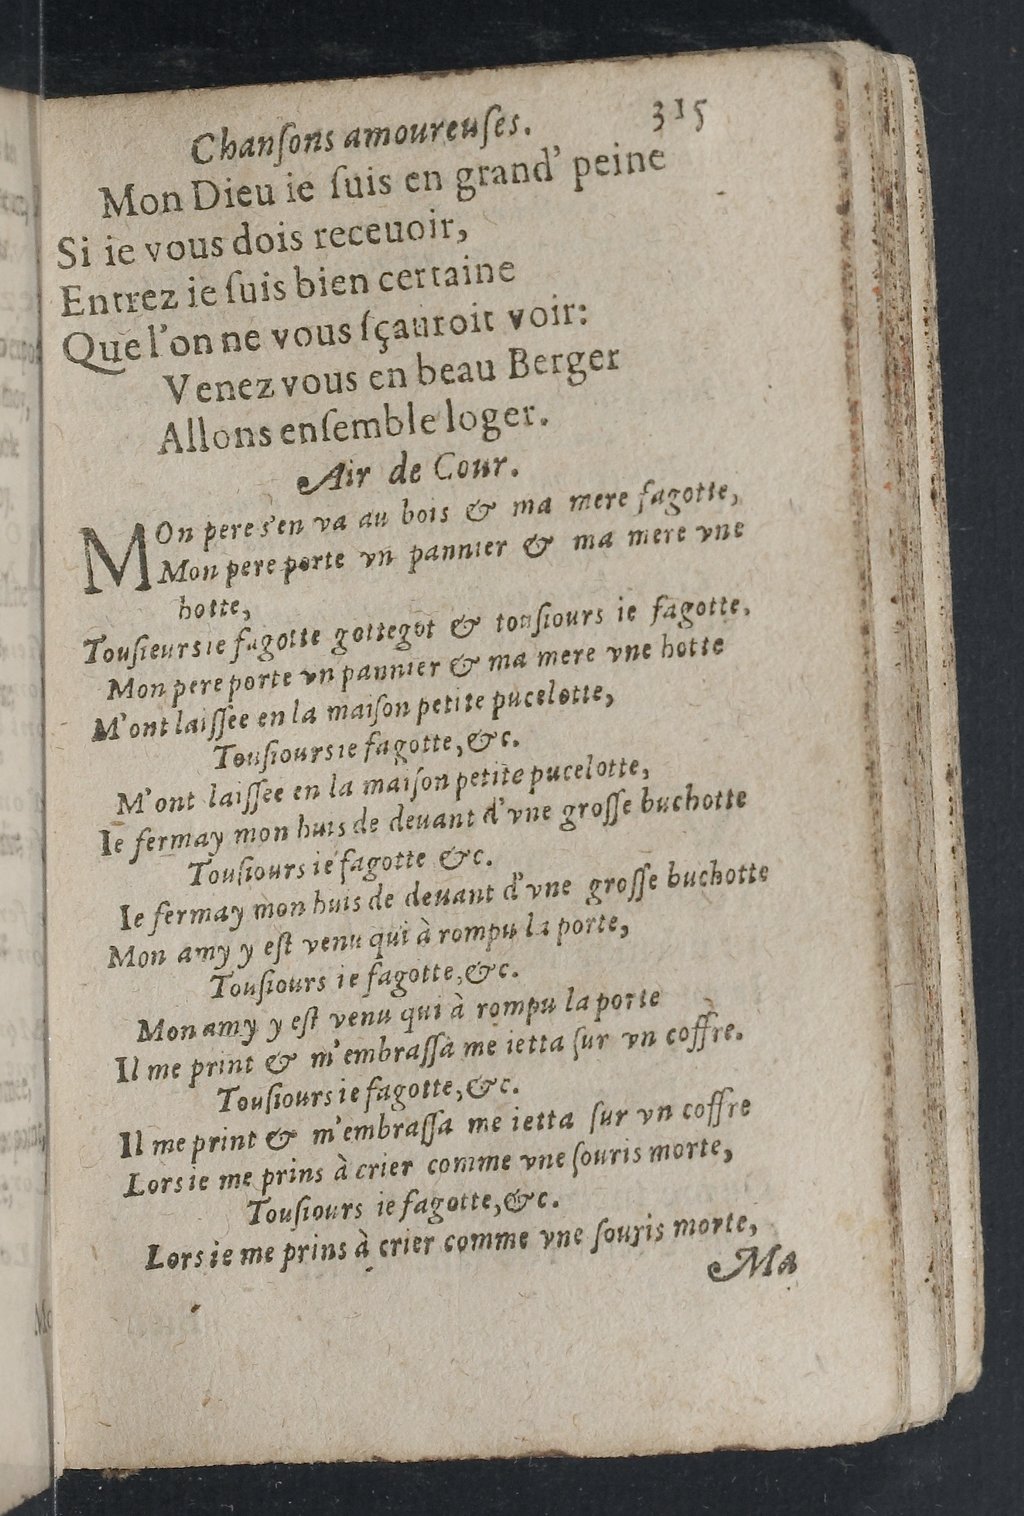 Chanſons amoureuſes. 315
Mon Dieu ie ſuis en grand' peine
Si ie vous dois receuoir,
Entrez ie ſuis bien certaine
Que l'on ne vous ſçauroit voir:
Venez vous en beau Berger
Allons enſemble loger.
Air de Cour.
MOn pere s'en va au bois & ma mere fagotte,
Mon pere porte vn pannier & ma mere vne
hotte,
Touſieurs ie fagotte gottegot & touſiours ie fagotte.
Mon pere porte vn pannier & ma mere vne hotte
M'ont laiſſée en la maiſon petite pucelotte,
Touſiours ie fagotte, &c.
M'ont laiſſee en la maiſon petite pucelotte,
Ie fermay mon huis de deuant d'vne groſſe buchotte
Touſiours ie fagotte &c.
Ie fermay mon huis de deuant d'vne groſſe buchotte
Mon amy y eſt venu qui à rompu la porte,
Touſiours ie fagotte, &c.
Mon amy y eſt venu qui à rompu la porte
Il me print & m'embraſſa me ietta ſur vn coffre.
Touſiours ie fagotte, &c.
Il me print & m'embraſſa me ietta ſur vn coffre
Lors ie me prins à crier comme vne ſouris morte,
Touſiours ie fagotte, &c.
Lors ie me prins à crier comme vne ſouris morte,
Ma